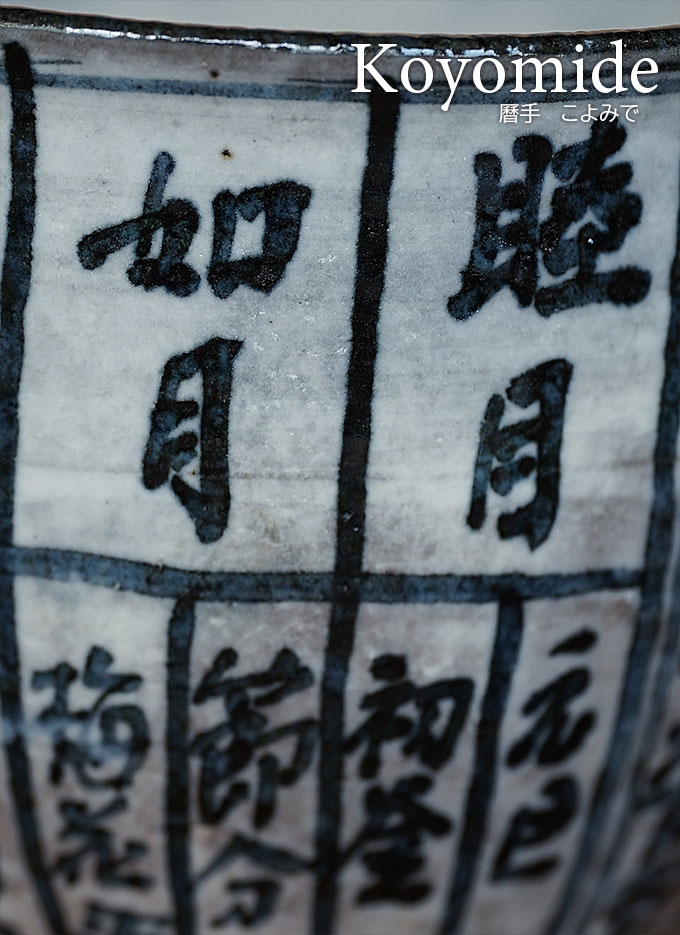 Koyomide
暦手 こよみで
睦月
如月
元旦
初釜
節分
梅花